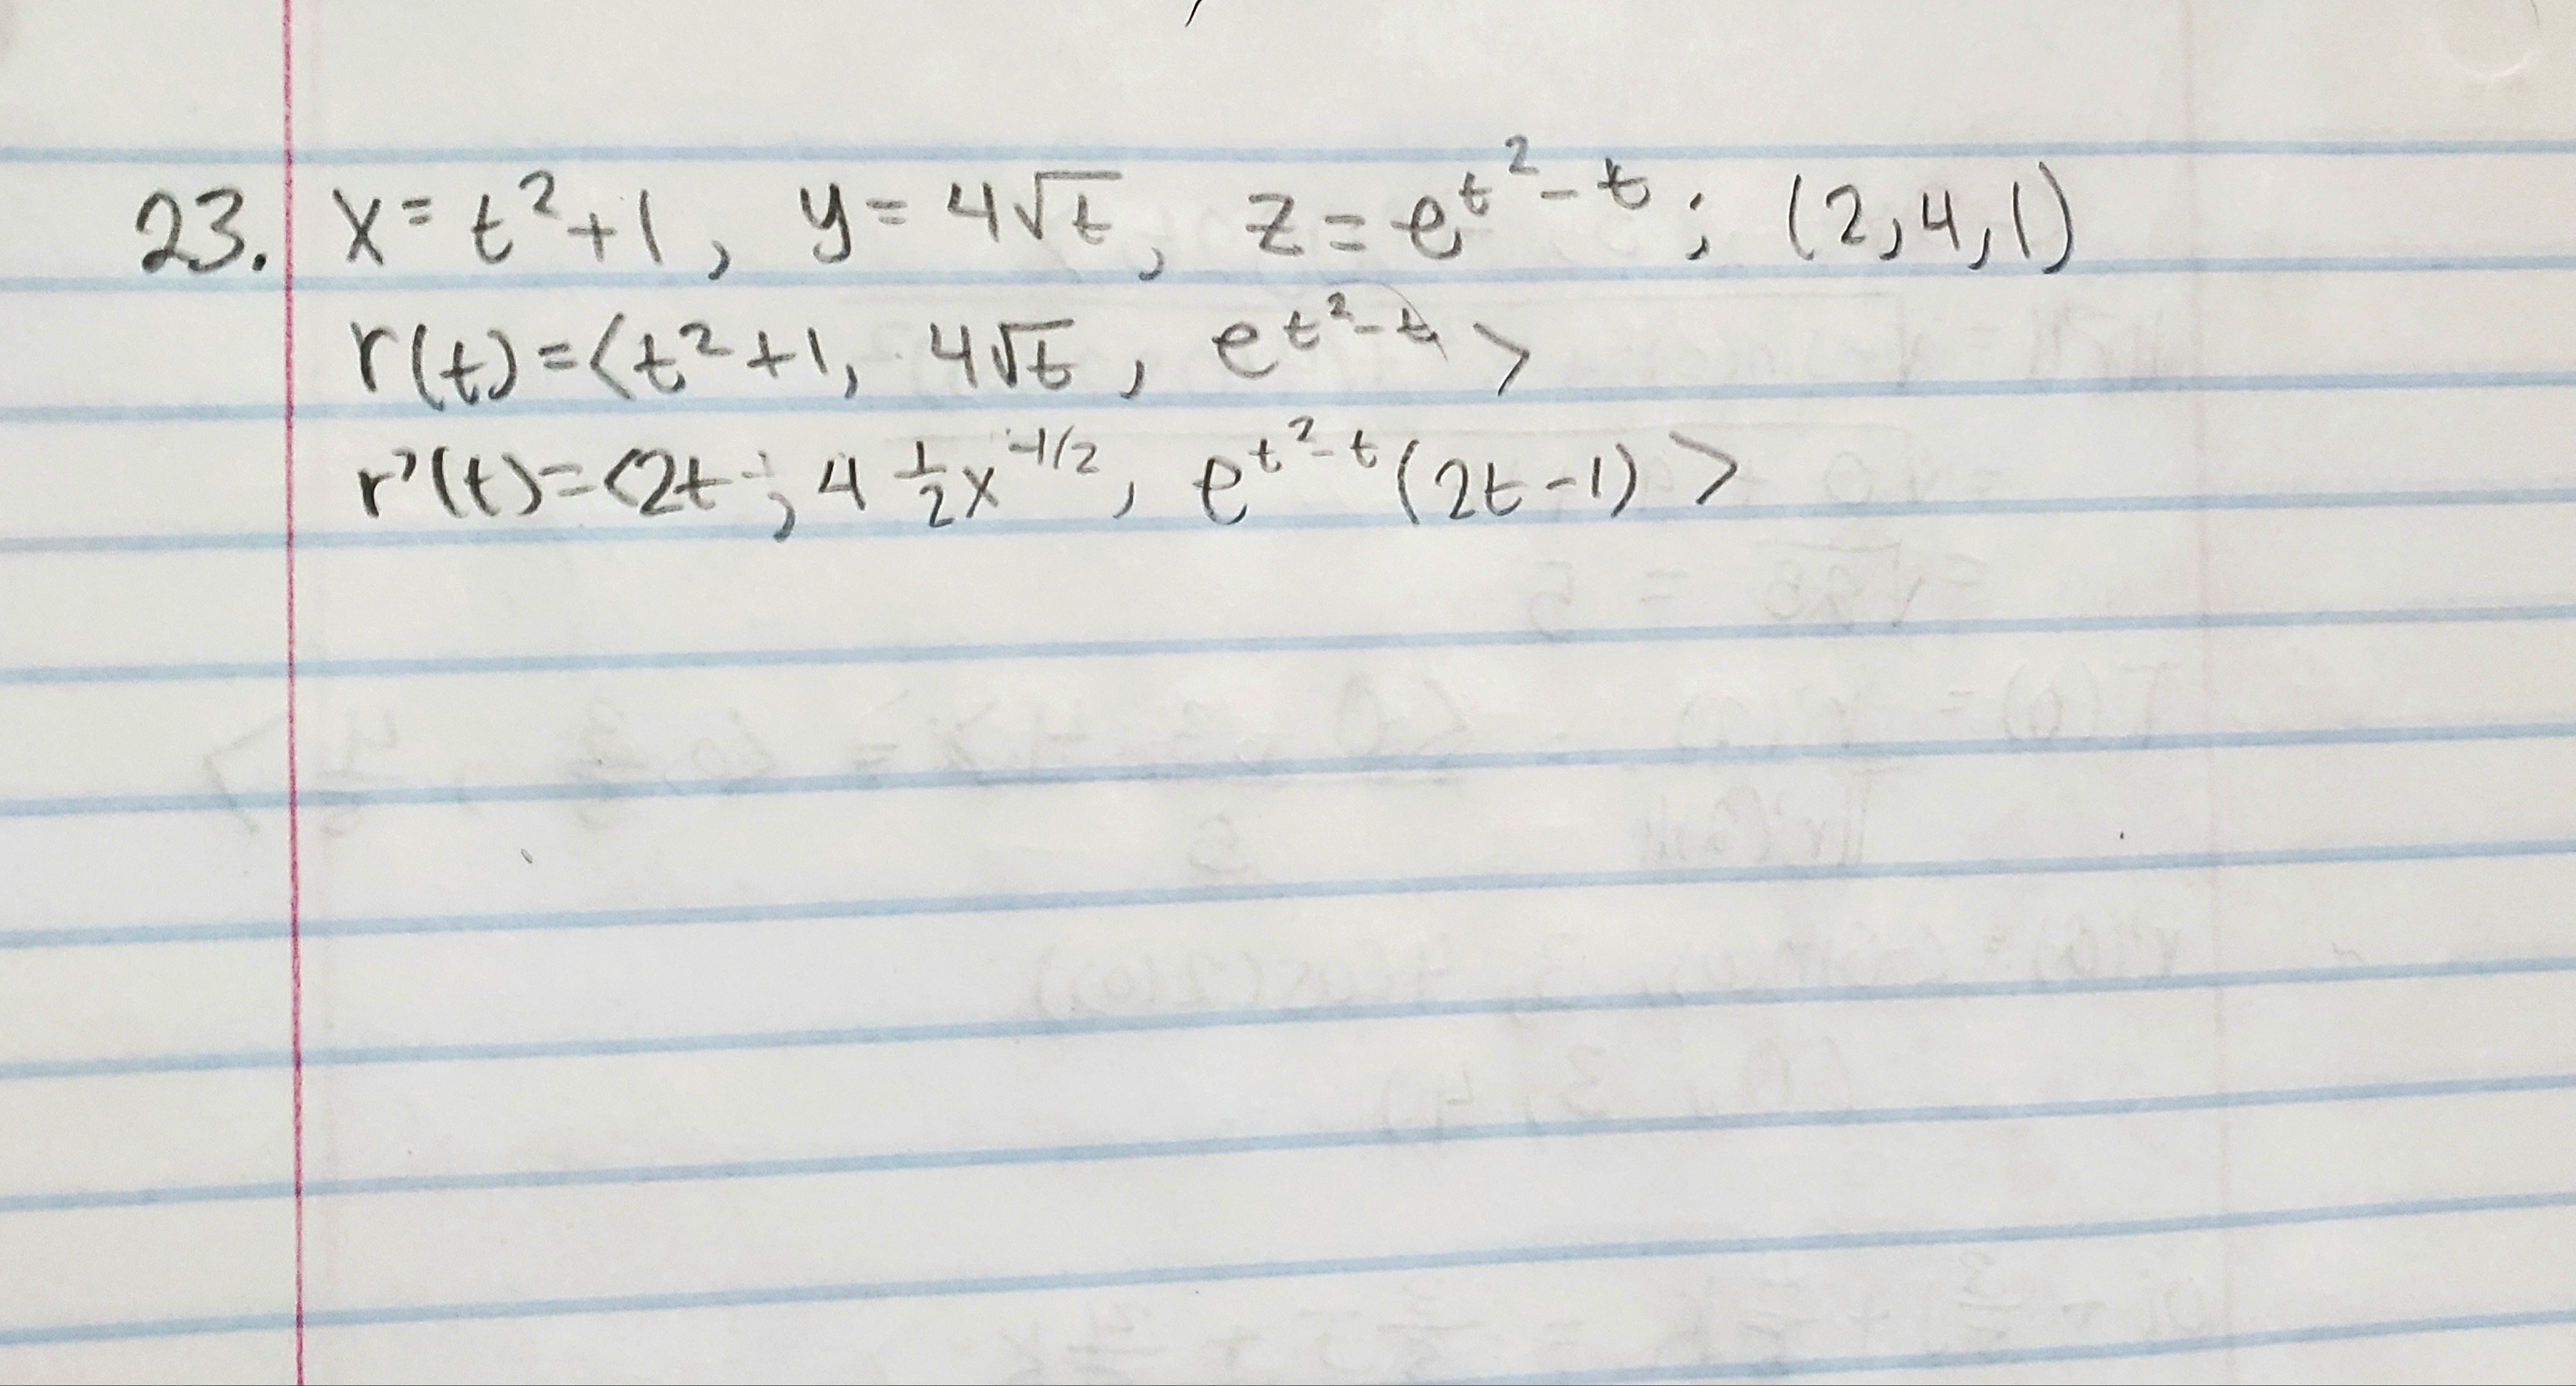 23. x = t²+1, y = 4√t, z = e^{t²-t}; (2,4,1)
r(t) = <t²+1, 4√t, e^{t²-t}>
r'(t) = <2t, 4 1/2 x^{-1/2}, e^{t²-t}(2t-1)>